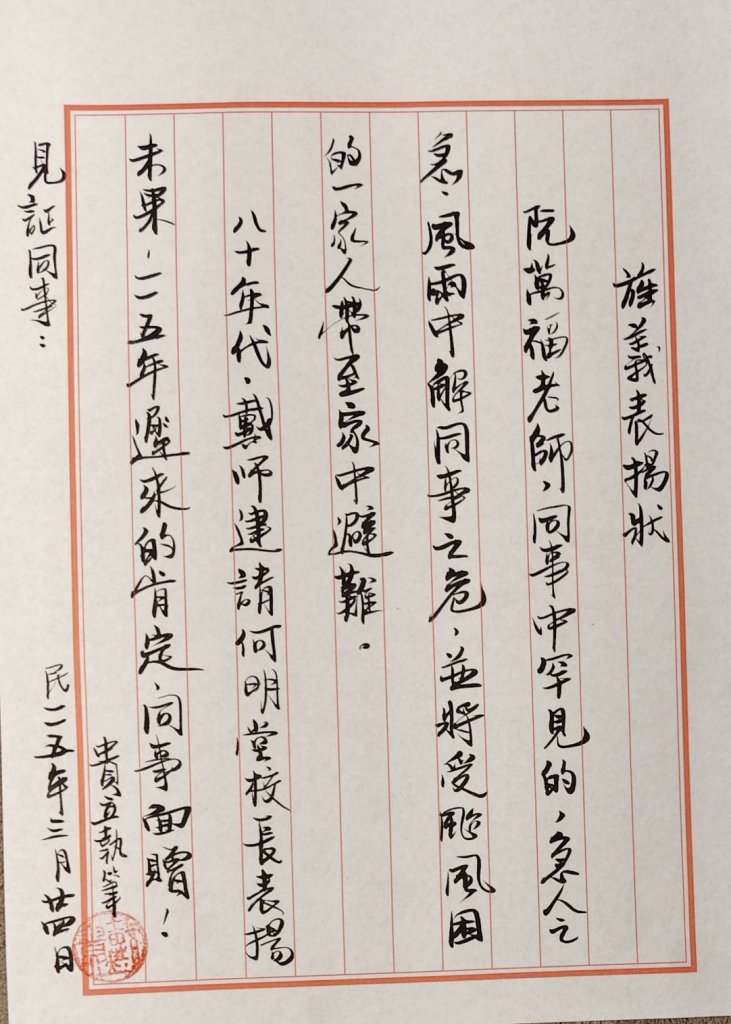 旌義表揚狀
阮萬福老師，同事中罕見的，急人之
急，風雨中解同事之危，並將受颱風困
的一家人帶至家中避難。
八十年代，戴師建請何明堂校長表揚
未果，一一五年遲來的肯定，同事面贈！
費立執筆
見証同事：
民一一五年三月廿四日